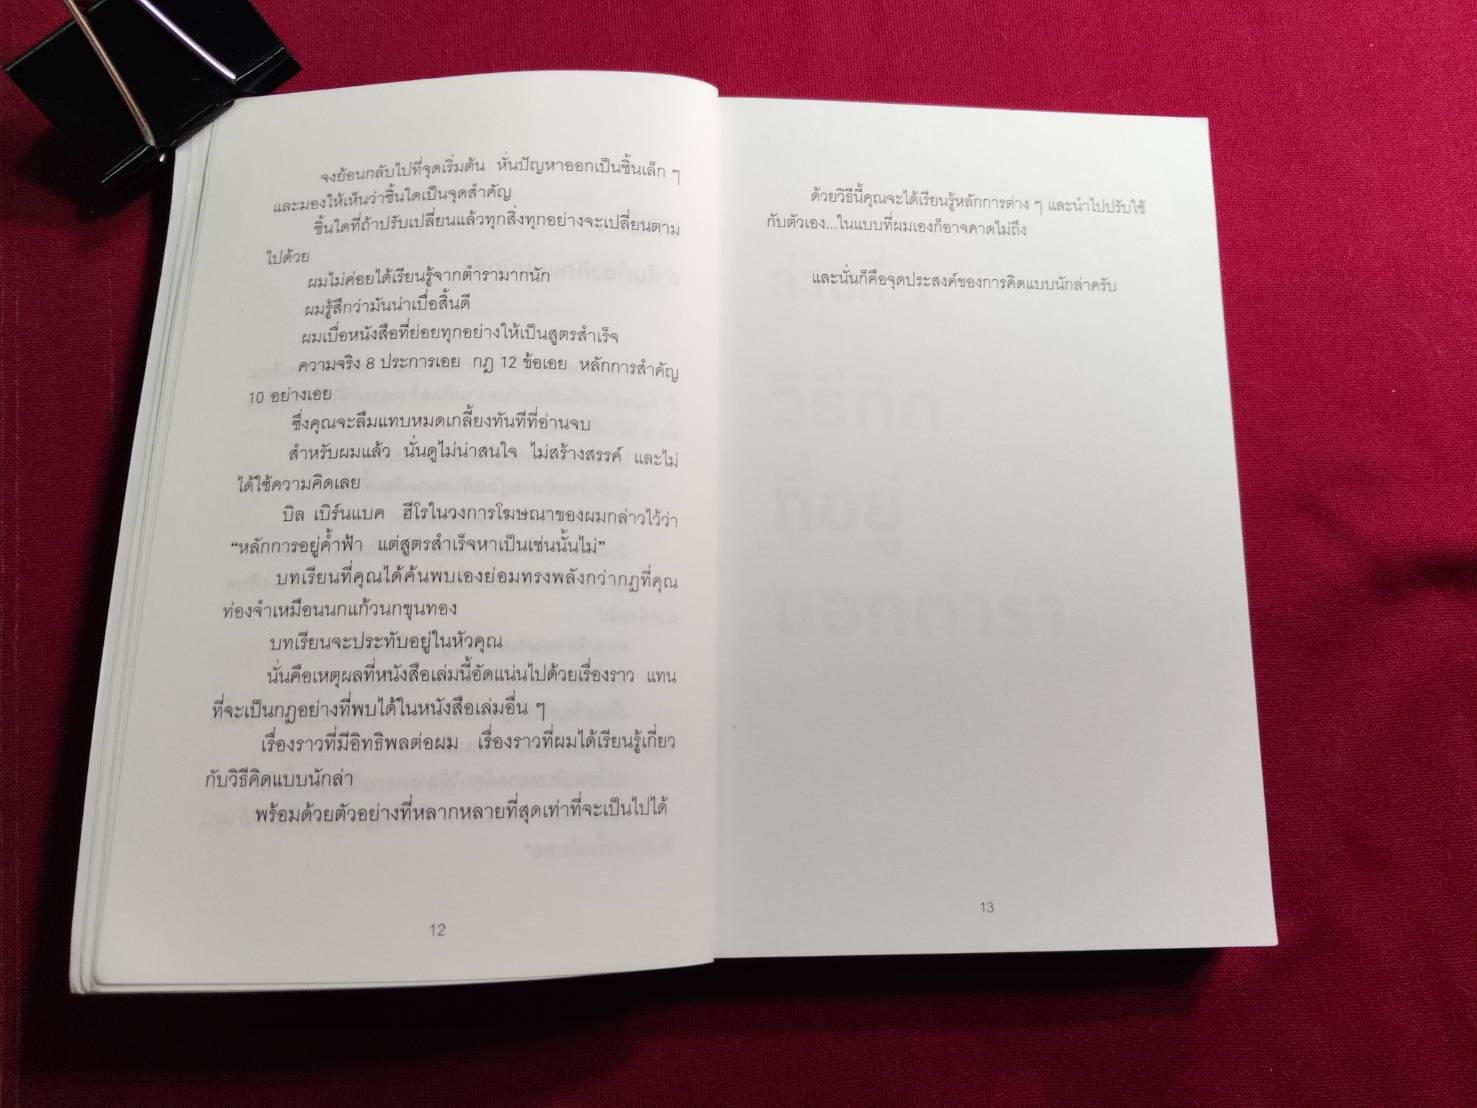 จงย้อนกลับไปที่จุดเริ่มต้น หั่นปัญหาออกเป็นชิ้นเล็ก ๆ
และมองให้เห็นว่าชิ้นใดเป็นจุดสำคัญ
ชิ้นใดที่ถ้าปรับเปลี่ยนแล้วทุกสิ่งทุกอย่างจะเปลี่ยนตาม
ไปด้วย
ผมไม่ค่อยได้เรียนรู้จากตำรามากนัก
ผมรู้สึกว่ามันน่าเบื่อสิ้นดี
ผมเบื่อหนังสือที่ย่อยทุกอย่างให้เป็นสูตรสำเร็จ
ความจริง 8 ประการเอย กฎ 12 ข้อเอย หลักการสำคัญ
10 อย่างเอย
ซึ่งคุณจะลืมแทบหมดเกลี้ยงทันทีที่อ่านจบ
สำหรับผมแล้ว นั่นดูไม่น่าสนใจ ไม่สร้างสรรค์ และไม่
ได้ใช้ความคิดเลย
บิล เบิร์นแบค ฮีโรในวงการโฆษณาของผมกล่าวไว้ว่า
“หลักการอยู่ค้ำฟ้า แต่สูตรสำเร็จหาเป็นเช่นนั้นไม่”
บทเรียนที่คุณได้ค้นพบเองย่อมทรงพลังกว่ากฎที่คุณ
ท่องจำเหมือนนกแก้วนกขุนทอง
บทเรียนจะประทับอยู่ในหัวคุณ
นั่นคือเหตุผลที่หนังสือเล่มนี้อัดแน่นไปด้วยเรื่องราว แทน
ที่จะเป็นกฎอย่างที่พบได้ในหนังสือเล่มอื่น ๆ
เรื่องราวที่มีอิทธิพลต่อผม เรื่องราวที่ผมได้เรียนรู้เกี่ยว
กับวิธีคิดแบบนักล่า
พร้อมด้วยตัวอย่างที่หลากหลายที่สุดเท่าที่จะเป็นไปได้
12
ด้วยวิธีนี้คุณจะได้เรียนรู้หลักการต่าง ๆ และนำไปปรับใช้
กับตัวเอง...ในแบบที่ผมเองก็อาจคาดไม่ถึง
และนั่นก็คือจุดประสงค์ของการคิดแบบนักล่าครับ
13